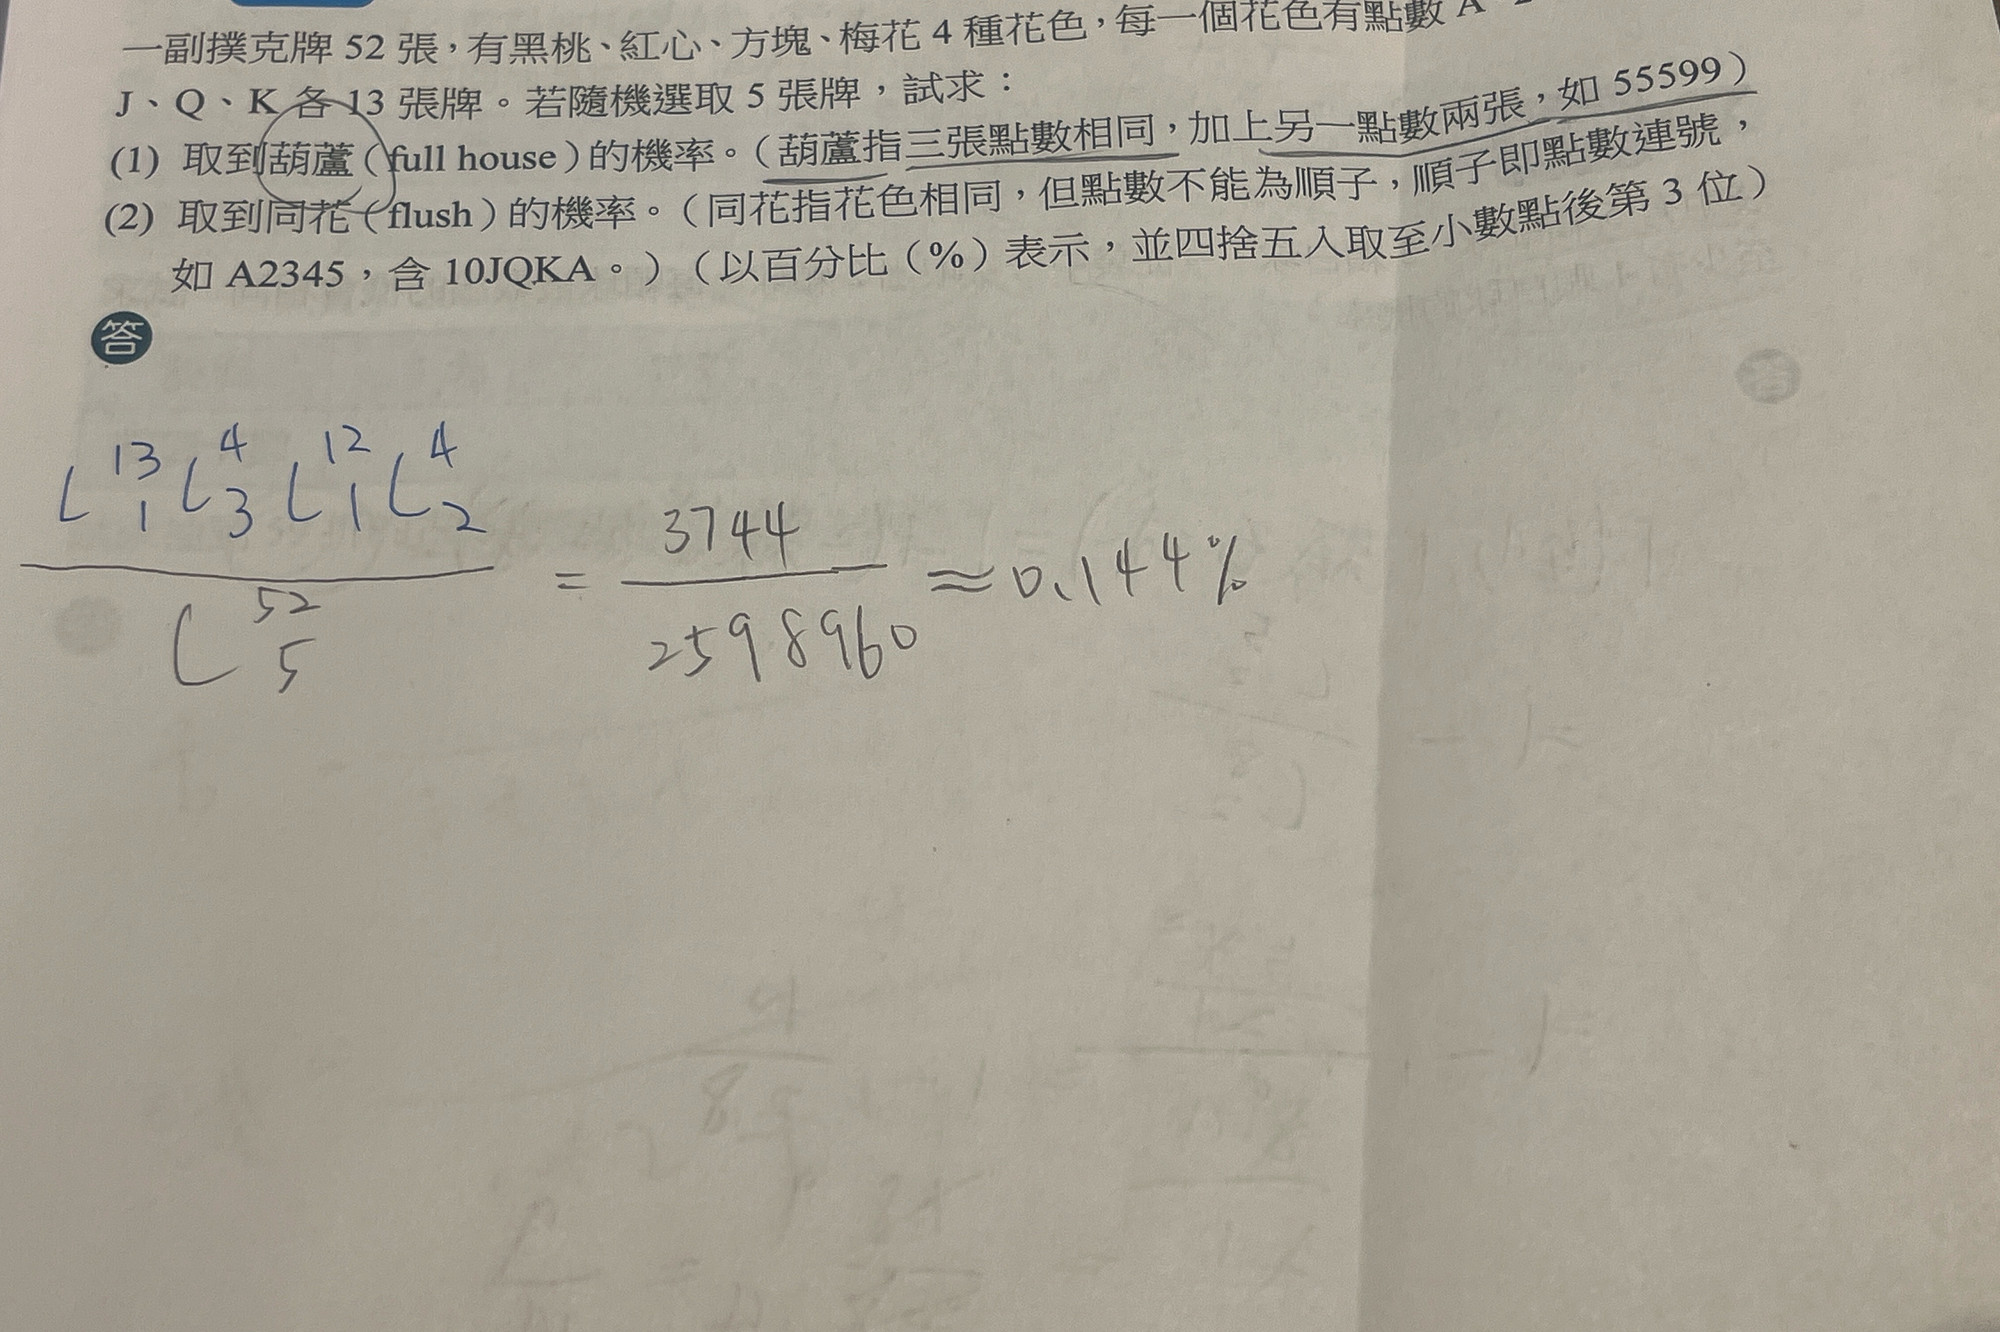 一副撲克牌 52 張，有黑桃、紅心、方塊、梅花 4 種花色，每一個花色有點數 A
J、Q、K 各 13 張牌。若隨機選取 5 張牌，試求：
(1) 取到葫蘆（full house）的機率。（葫蘆指三張點數相同，加上另一點數兩張，如 55599）
(2) 取到同花（flush）的機率。（同花指花色相同，但點數不能為順子，順子即點數連號，
如 A2345，含 10JQKA。）（以百分比（%）表示，並四捨五入取至小數點後第 3 位）
答
C 13 1 C 4 3 C 12 1 C 4 2 / C 52 5 = 3744 / 2598960 ≈ 0.144%